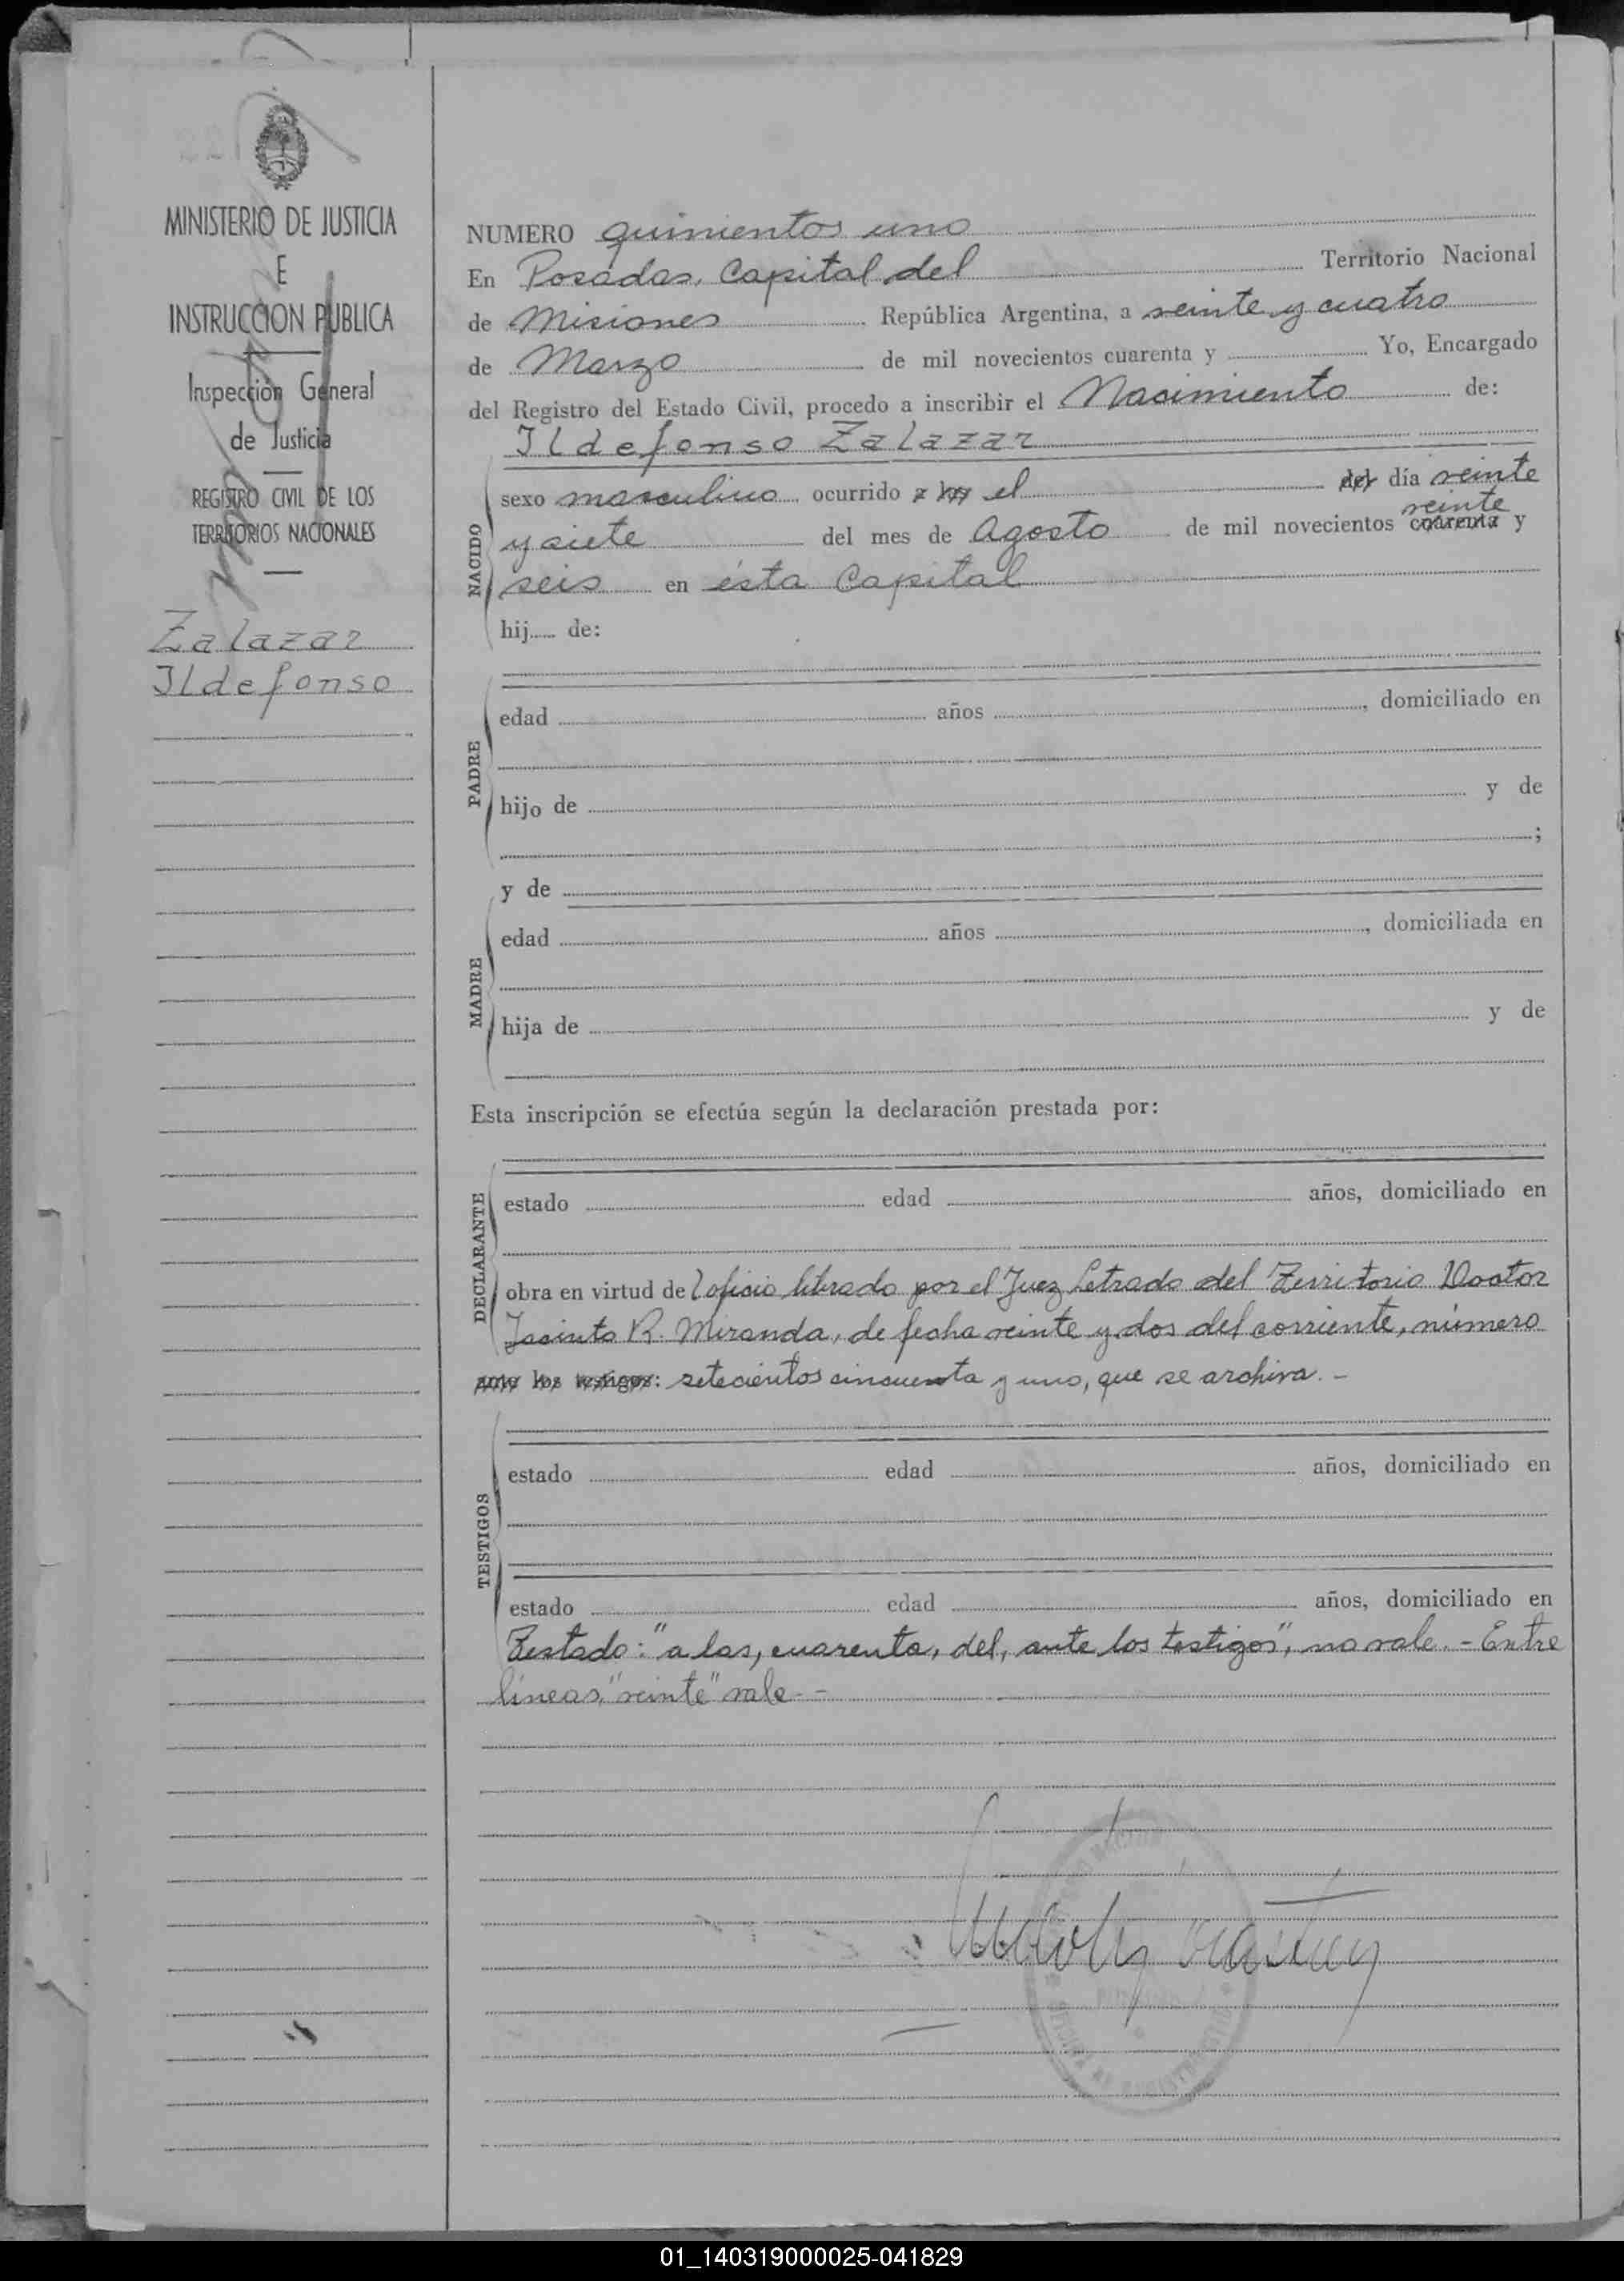 MINISTERIO DE JUSTICIA
E
INSTRUCCION PUBLICA
Inspección General
de Justicia
REGISTRO CIVIL DE LOS
TERRITORIOS NACIONALES
Zalazar
Ildefonso
NUMERO quinientos uno
En Posadas, Capital del Territorio Nacional
de Misiones República Argentina, a veinte y cuatro
de Marzo de mil novecientos cuarenta y Yo, Encargado
del Registro del Estado Civil, procedo a inscribir el Nacimiento de:
Ildefonso Zalazar
NACIDO
sexo masculino ocurrido a las el del día veinte
veinte
y siete del mes de Agosto de mil novecientos cuarenta y
seis en ésta Capital
hij de:
PADRE
edad años , domiciliado en
hijo de y de
;
y de
MADRE
edad años , domiciliada en
hija de y de
Esta inscripción se efectúa según la declaración prestada por:
DECLARANTE
estado edad años, domiciliado en
obra en virtud de oficio librado por el Juez Letrado del Territorio Doctor
Jacinto R. Miranda, de fecha veinte y dos del corriente, número
ante los testigos: setecientos cincuenta y uno, que se archiva. -
TESTIGOS
estado edad años, domiciliado en
estado edad años, domiciliado en
Testado: "a las, cuarenta, del, ante los testigos", no vale. - Entre
líneas, "veinte" vale - -
01_140319000025-041829